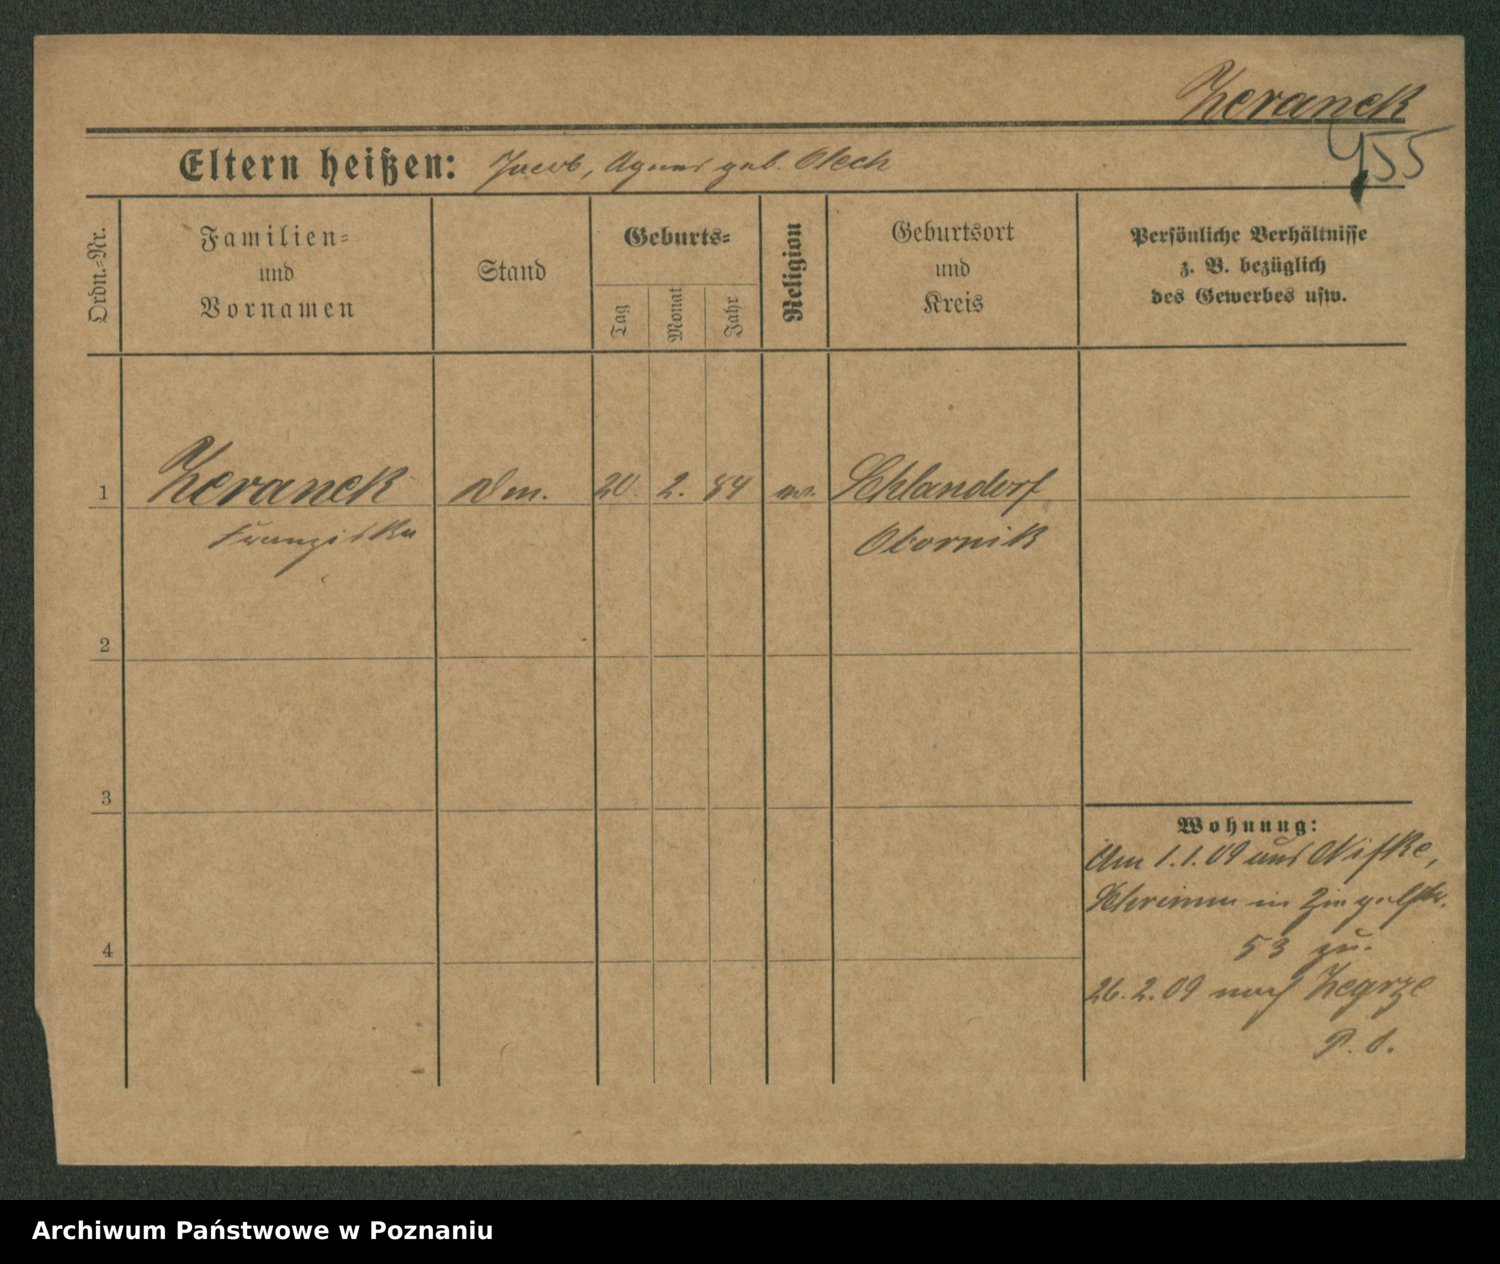 Zeranek
455
Eltern heißen: Jacob, Agnes geb. Olech
Ordn.-Nr.
Familien- und Vornamen
Stand
Geburts-
Tag
Monat
Jahr
Religion
Geburtsort und Kreis
Persönliche Verhältnisse
z. B. bezüglich
des Gewerbes usw.
1 Zeranek 20. 2. 84 Schlandorf
Franziska Obornik
2
3
4
Wohnung:
Am 1.1.09 aus
Schrimm in
53 zu.
26.2.09 nach Zegrze
Archiwum Państwowe w Poznaniu